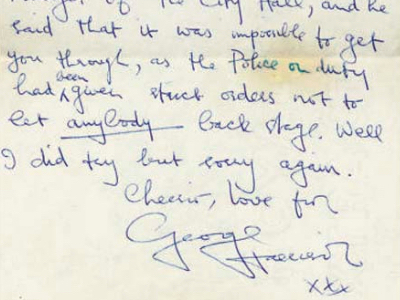 of the City Hall, and he
said that it was impossible to get
you through, as the Police on duty
had been given strict orders not to
let anybody back stage. Well
I did try but sorry again.
Cheerio, love from
George
Harrison
xxx